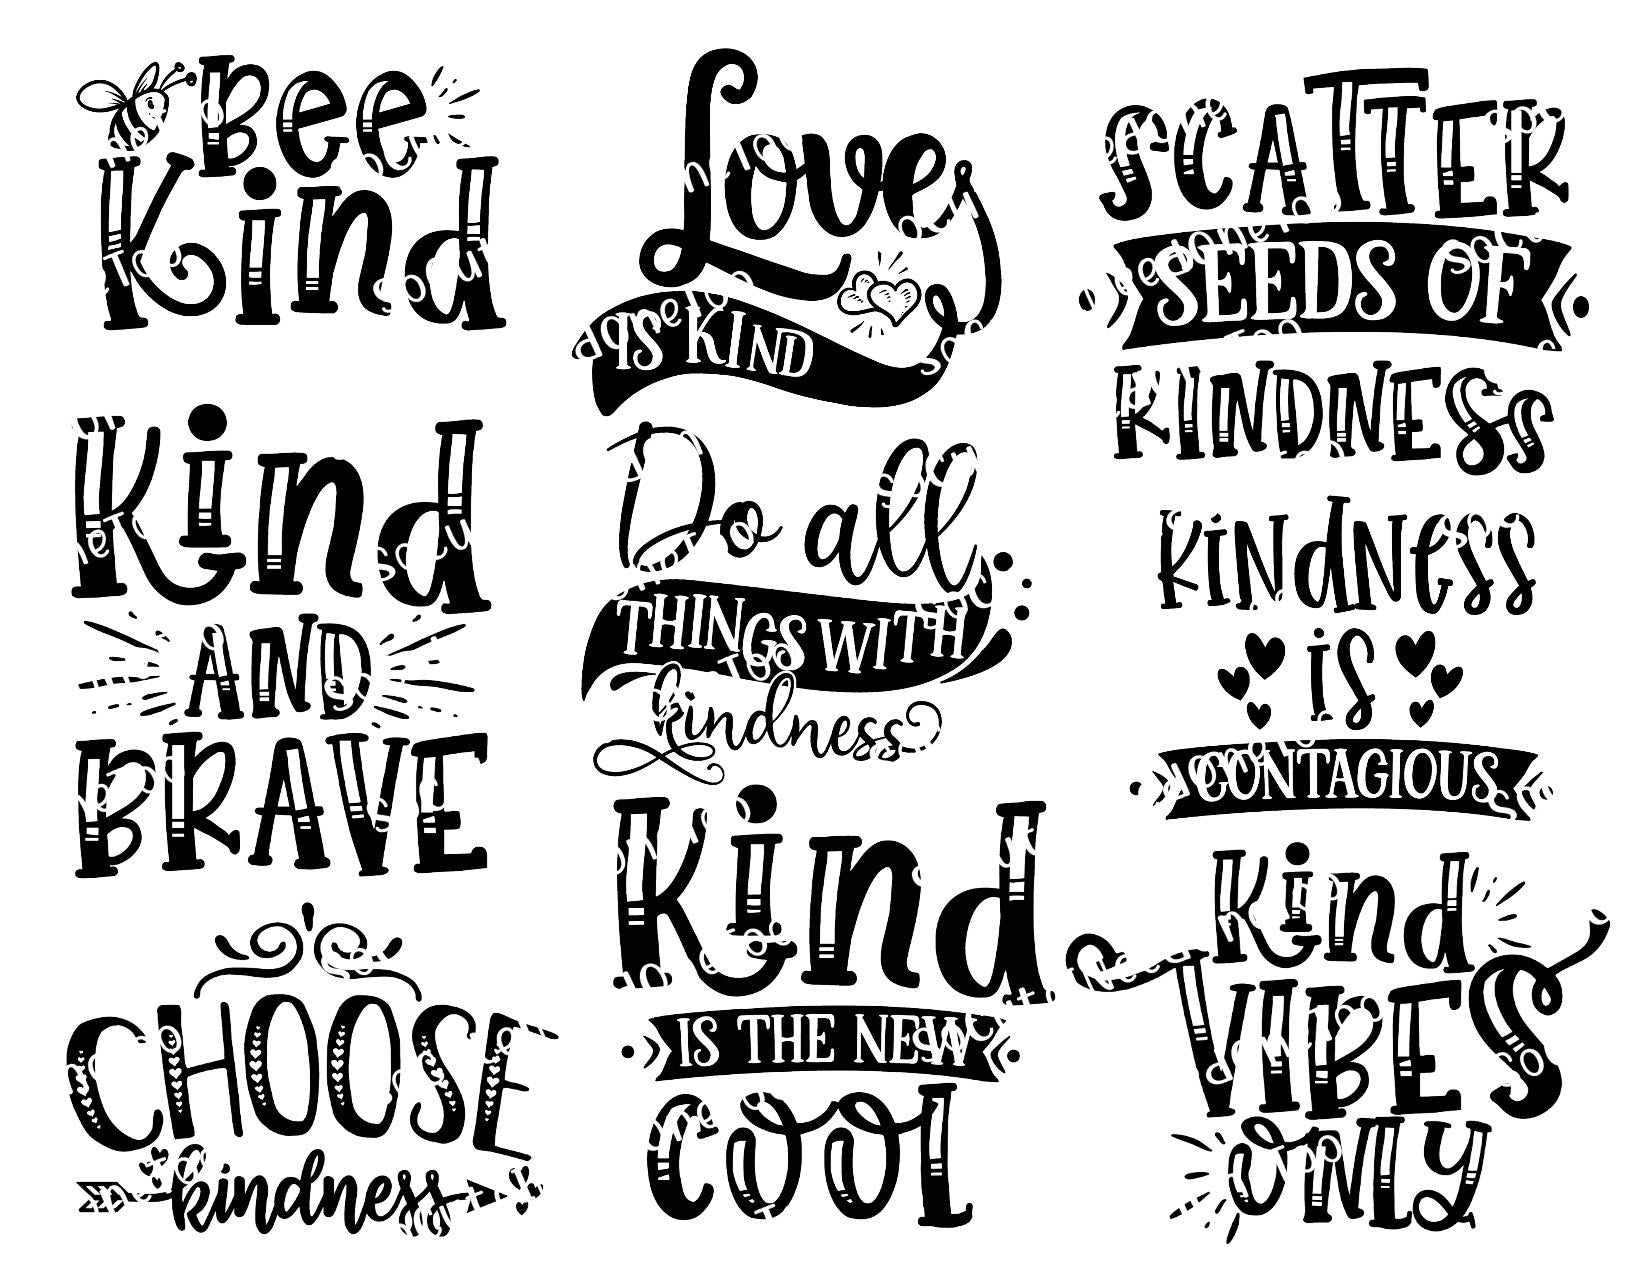 Bee
Kind
Kind
AND
BRAVE
CHOOSE
kindness
Love
IS KIND
Do all
THINGS WITH
kindness
Kind
IS THE NEW
COOL
SCATTER
SEEDS OF
KINDNESS
KINdNess
is
CONTAGIOUS
Kind
VIBES
ONLY